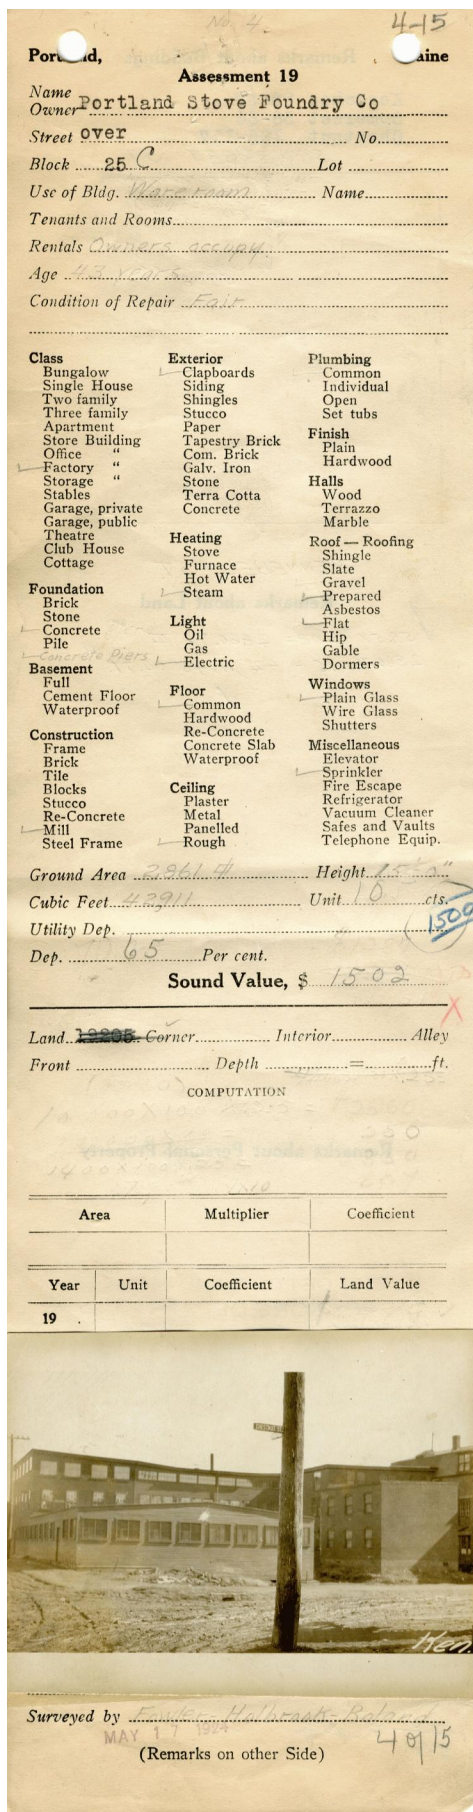 No. 4
4-15
Portland, Maine
Assessment 19
Name
Owner Portland Stove Foundry Co
Street over No.
Block 25 C Lot
Use of Bldg. Wareroom Name
Tenants and Rooms
Rentals Owners occupy
Age 43 years
Condition of Repair Fair
Class
Bungalow
Single House
Two family
Three family
Apartment
Store Building
Office "
Factory "
Storage "
Stables
Garage, private
Garage, public
Theatre
Club House
Cottage
Foundation
Brick
Stone
Concrete
Pile
Concrete Piers
Basement
Full
Cement Floor
Waterproof
Construction
Frame
Brick
Tile
Blocks
Stucco
Re-Concrete
Mill
Steel Frame
Exterior
Clapboards
Siding
Shingles
Stucco
Paper
Tapestry Brick
Com. Brick
Galv. Iron
Stone
Terra Cotta
Concrete
Heating
Stove
Furnace
Hot Water
Steam
Light
Oil
Gas
Electric
Floor
Common
Hardwood
Re-Concrete
Concrete Slab
Waterproof
Ceiling
Plaster
Metal
Panelled
Rough
Plumbing
Common
Individual
Open
Set tubs
Finish
Plain
Hardwood
Halls
Wood
Terrazzo
Marble
Roof — Roofing
Shingle
Slate
Gravel
Prepared
Asbestos
Flat
Hip
Gable
Dormers
Windows
Plain Glass
Wire Glass
Shutters
Miscellaneous
Elevator
Sprinkler
Fire Escape
Refrigerator
Vacuum Cleaner
Safes and Vaults
Telephone Equip.
Ground Area 2861 Height
Cubic Feet 42911 Unit 10 cts.
1500
Utility Dep.
Dep. 65 Per cent.
Sound Value, $ 1502
X
Land Corner Interior Alley
Front Depth = ft.
COMPUTATION
Area Multiplier Coefficient
Year Unit Coefficient Land Value
19
CHESTNUT
Ken.
Surveyed by Fowler Holbrook Roland
MAY 17 1924
40/15
(Remarks on other Side)